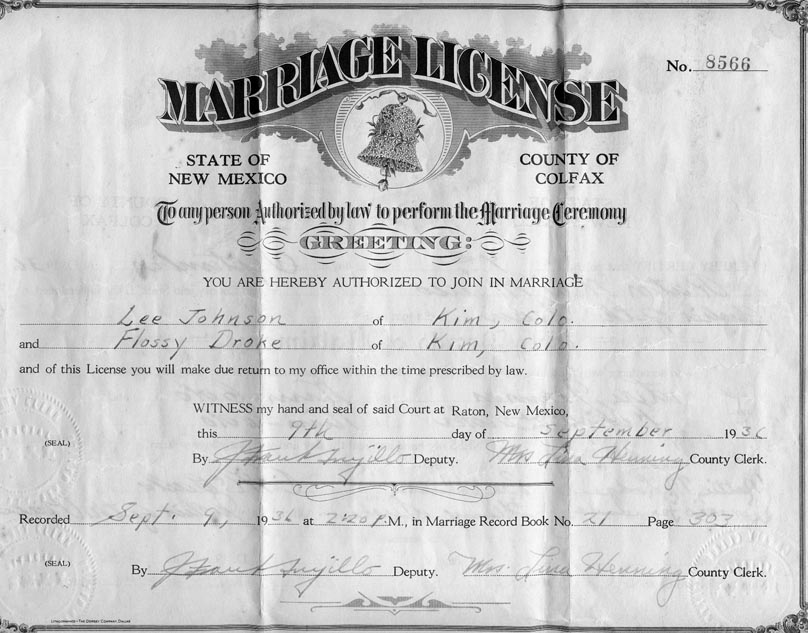 No. 8566
MARRIAGE LICENSE
STATE OF NEW MEXICO
COUNTY OF COLFAX
To any person Authorized by law to perform the Marriage Ceremony
GREETING:
YOU ARE HEREBY AUTHORIZED TO JOIN IN MARRIAGE
Lee Johnson of Kim, Colo.
and Flossy Droke of Kim, Colo.
and of this License you will make due return to my office within the time prescribed by law.
WITNESS my hand and seal of said Court at Raton, New Mexico,
(SEAL)
this 9th day of September 1936
By J Frank Trujillo Deputy. Mrs Henning County Clerk.
Recorded Sept. 9, 1936 at 2:20 P.M., in Marriage Record Book No. 21 Page 303
(SEAL)
By J Frank Trujillo Deputy. Mrs. Henning County Clerk.